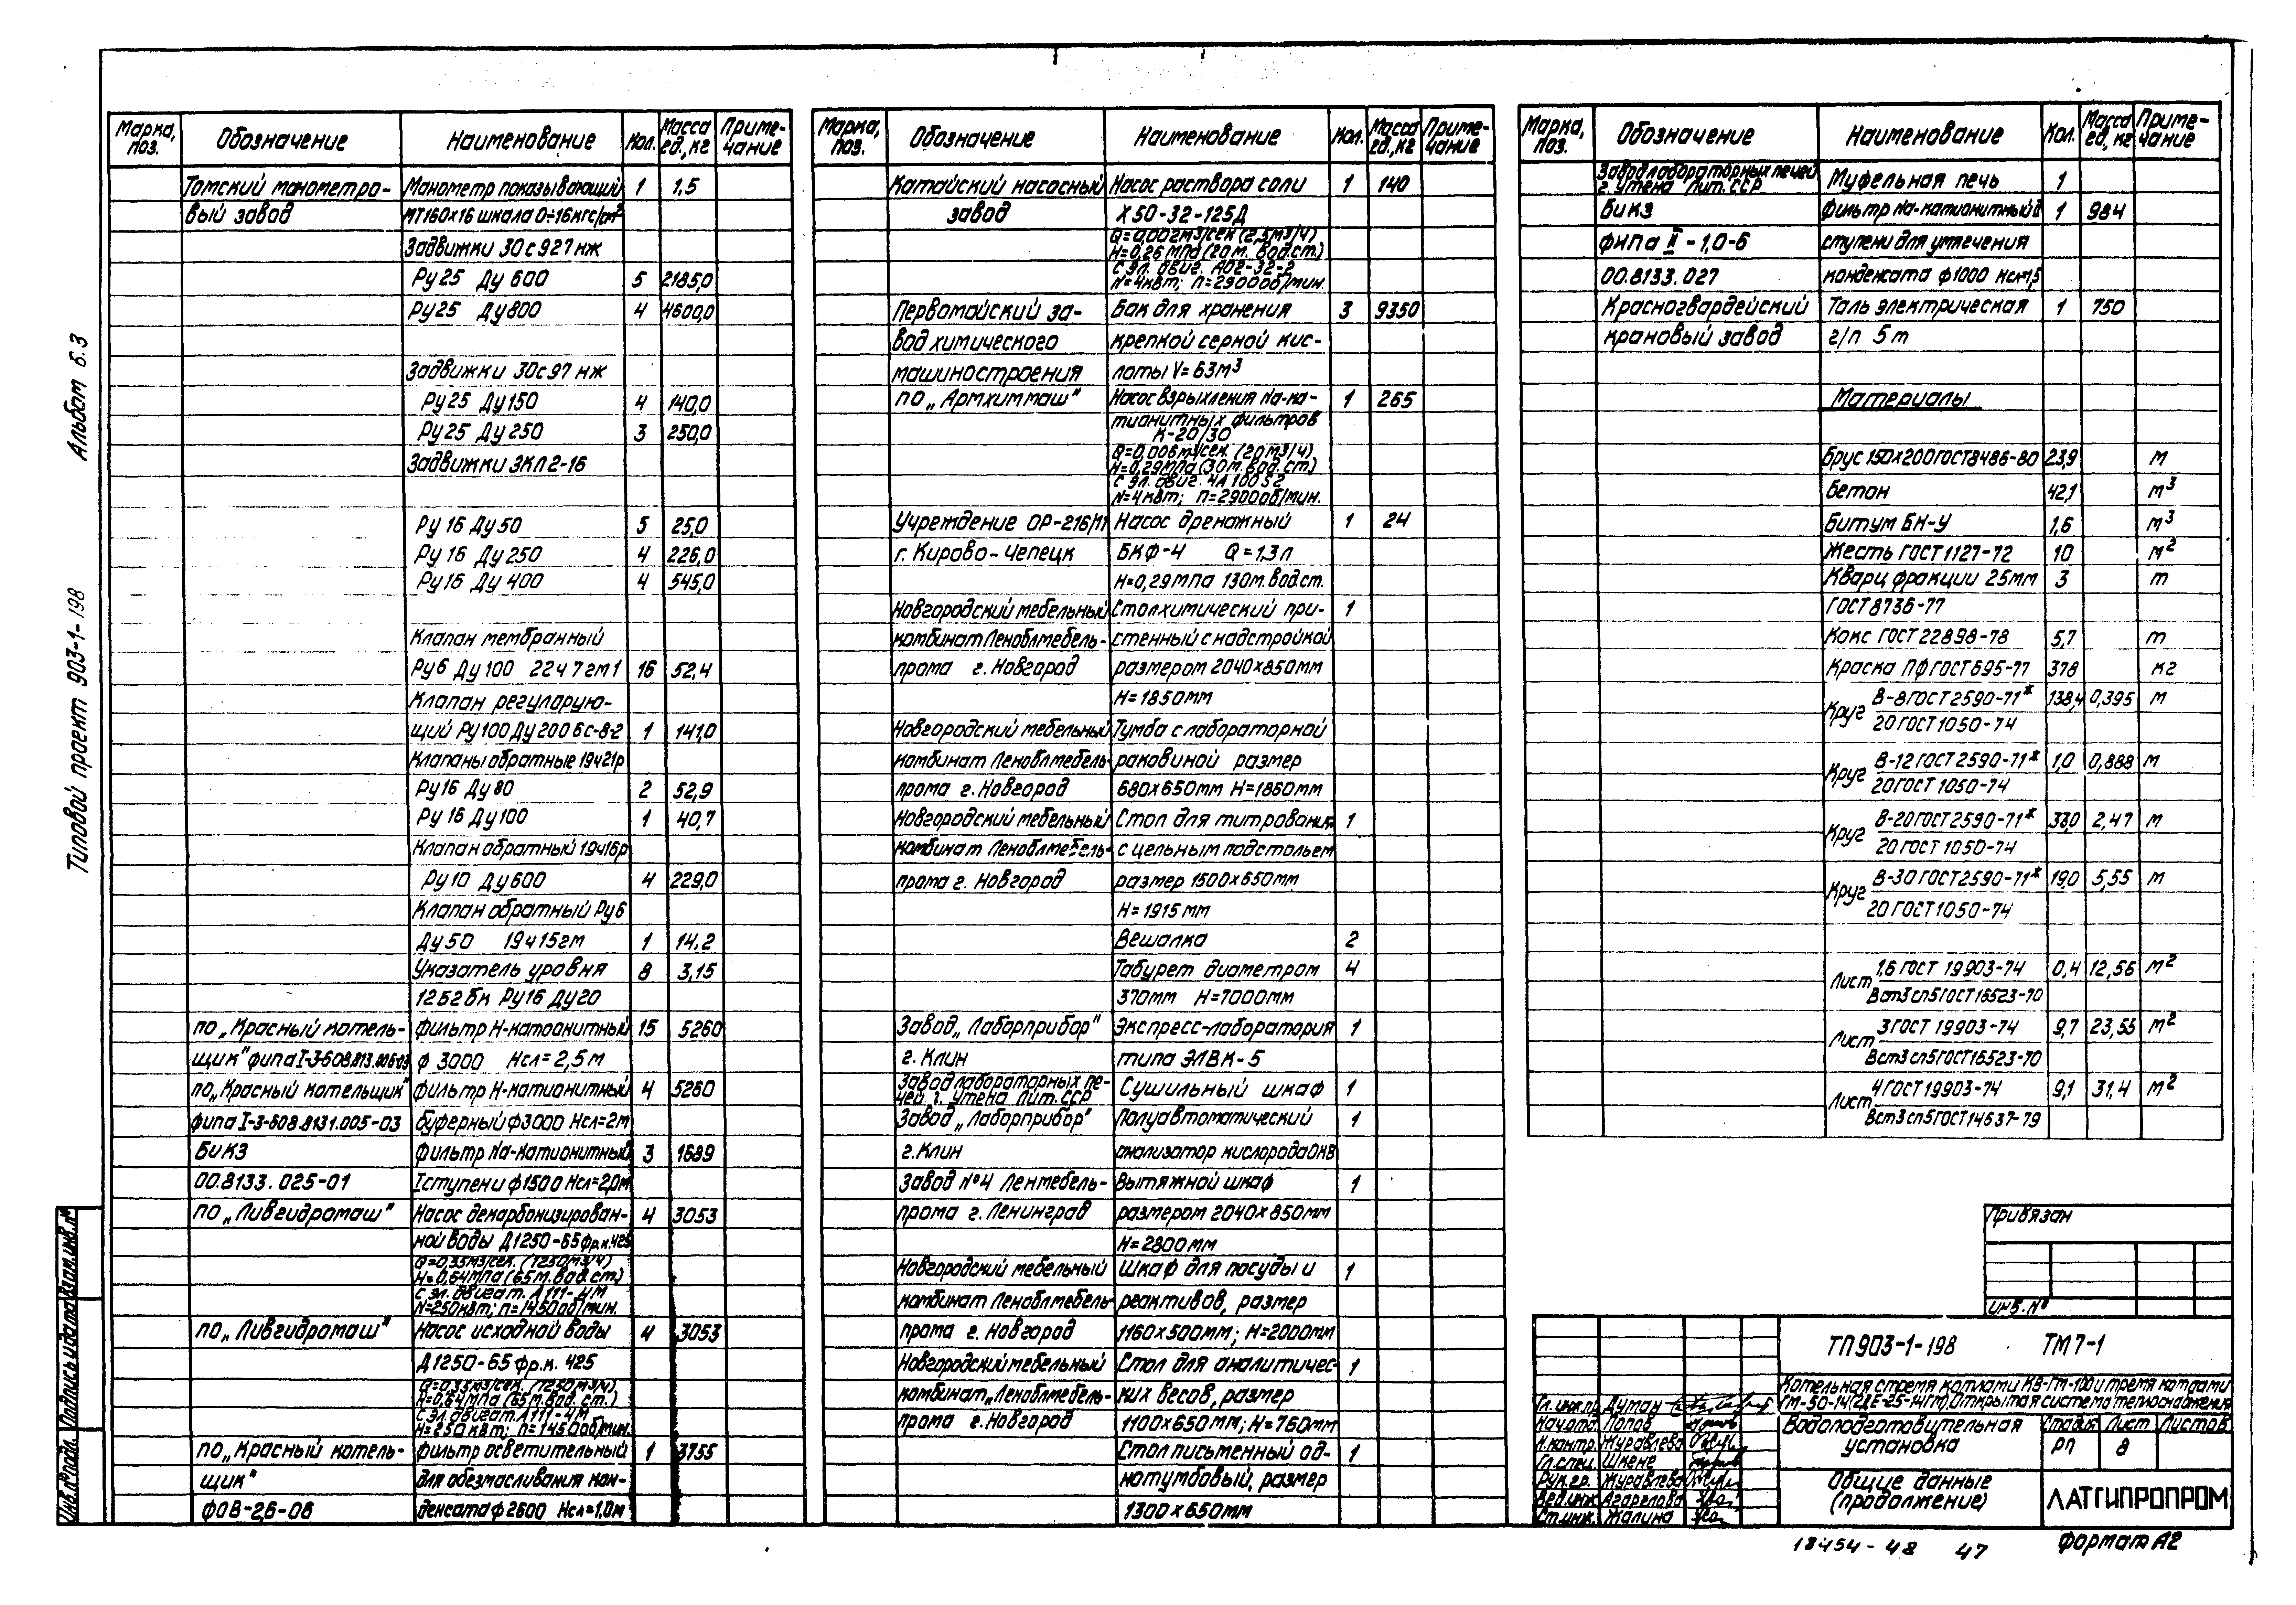 Альбом 6.3
Типовой проект 903-1-198
Марка, поз. Обозначение Наименование Кол. Масса ед., кг Примечание
Томский манометро- Манометр показывающий 1 1,5
вый завод МТ160х16 шкала 0÷16кгс/см²
Задвижки 30с927нж
Ру25 Ду 600 5 2185,0
Ру25 Ду800 4 4600,0
Задвижки 30с97нж
Ру25 Ду150 4 140,0
Ру25 Ду250 3 250,0
Задвижки ЗКЛ2-16
Ру 16 Ду50 5 25,0
Ру 16 Ду 250 4 226,0
Ру16 Ду 400 4 545,0
Клапан мембранный
Ру6 Ду100 22ч7гм1 16 52,4
Клапан регулирую-
щий Ру100 Ду200 6с-8-2 1 141,0
Клапаны обратные 19ч21р
Ру16 Ду80 2 52,9
Ру 16 Ду100 1 40,7
Клапан обратный 19ч16р
Ру10 Ду600 4 229,0
Клапан обратный Ру6
Ду50 19ч15гм 1 14,2
Указатель уровня 8 3,15
12б2бк Ру16 Ду20
по „Красный котель- Фильтр Н-катоонитный 15 5260
щик" фипа I-3- ф 3000 Нсл=2,5м
по „Красный котельщик" Фильтр Н-катионитный 4 5260
фипа I-3-608.8131.005-03 буферный ф3000 Нсл=2м
БиКЗ Фильтр Na-катионитный 3 1689
00.8133.025-01 I ступени ф1500 Нсл=2,0м
по „Ливгидромаш" Насос декарбонизирован- 4 3053
ной воды Д1250-65 ф.р.к.425
Q=0,35м3/сек. (1250м3/ч)
Н=0,64мпа (65 м.вод.ст)
с эл. двигат. А111-4М
N=250квт; n=1450об/мин.
по „Ливгидромаш" Насос исходной воды 4 3053
Д1250-65 фр.к. 425
Q=0,35м3/сек. (1250м3/ч)
Н=0,64мпа (65м.вод.ст.)
с эл. двигат. А111-4М
Н=250квт; n=1450об/мин.
по „Красный котель- Фильтр осветительный 1 3755
щик" для обезмасливания кон-
ФОВ-2,6-06 денсата ф 2600 Нсл=1,0м
Марка, поз. Обозначение Наименование Кол. Масса ед., кг Примечание
Катайский насосный Насос раствора соли 1 140
завод Х50-32-125Д
Q=0,002м3/сек (2,5м3/ч)
Н=0,26мпа (20м.вод.ст.)
с эл. двиг. А02-32-2
N=4квт; n=2900об/мин.
Первомайский за- Бак для хранения 3 9350
вод химического крепкой серной кис-
машиностроения лоты V=63м³
по „Армхиммаш" Насос взрыхления Na-ка- 1 265
тионитных фильтров
К-20/30
Q=0,006м3/сек. (20м3/ч)
Н=0,29мпа (30м.вод.ст)
с эл. двиг. 4А100S2
N=4квт; n=2900об/мин.
Учреждение ОР-216/11 Насос дренажный 1 24
г. Кирово-Чепецк БКФ-4 Q=1,3л
Н=0,29мпа 130м.вод.ст.
Новгородский мебельный Стол химический при- 1
комбинат Леноблмебель- стенный с надстройкой
прома г. Новгород размером 2040х850мм
Н=1850мм
Новгородский мебельный Тумба с лабораторной
комбинат Леноблмебель- раковиной размер
прома г. Новгород 680х650мм Н=1860мм
Новгородский мебельный Стол для титрования 1
комбинат Леноблмебель- с цельным подстольем
прома г. Новгород размер 1500х650мм
Н=1915мм
Вешалка 2
Табурет диаметром 4
370мм Н=7000мм
Завод „Лаборприбор" Экспресс-лаборатория 1
г. Клин типа ЭЛВК-5
Завод лабораторных пе-
чей г. Утена Лит.ССР Сушильный шкаф 1
Завод „Лаборприбор" Полуавтоматический 1
г. Клин анализатор кислорода
Завод №4 Ленмебель- Вытяжной шкаф 1
прома г. Ленинград размером 2040х850мм
Н=2800мм
Новгородский мебельный Шкаф для посуды и 1
комбинат Леноблмебель- реактивов, размер
прома г. Новгород 1160х500мм; Н=2000мм
Новгородский мебельный Стол для аналитичес- 1
комбинат „Леноблмебель- ких весов, размер
прома г. Новгород 1100х650мм; Н=760мм
Стол письменный од- 1
нотумбовый, размер
1300х650мм
Марка, поз. Обозначение Наименование Кол. Масса ед, кг Примечание
Завод лабораторных печей
г. Утена Лит.ССР Муфельная печь 1
БиКЗ Фильтр Na-катионитный II 1 984
фипа II-1,0-6 ступени для умягчения
00.8133.027 конденсата ф1000 Нсл=1,5
Красногвардейский Таль электрическая 1 750
крановый завод г/п 5т
Материалы
Брус 150х200 ГОСТ8486-80 23,9 м
Бетон 42,1 м³
Битум БН-У 1,6 м³
Жесть ГОСТ1127-72 10 м²
Кварц фракции 25мм 3 т
ГОСТ8736-77
Кокс ГОСТ 22898-78 5,7 т
Краска ПФ ГОСТ695-77 378 кг
Круг В-8 ГОСТ2590-71* 138,4 0,395 м
20 ГОСТ1050-74
Круг В-12 ГОСТ2590-71* 1,0 0,888 м
20 ГОСТ 1050-74
Круг В-20 ГОСТ2590-71* 33,0 2,47 м
20 ГОСТ 1050-74
Круг В-30 ГОСТ2590-71* 19,0 5,55 м
20 ГОСТ1050-74
Лист 1,6 ГОСТ 19903-74 0,4 12,56 м²
Вст3сп5 ГОСТ16523-70
Лист 3 ГОСТ 19903-74 9,7 23,55 м²
Вст3сп5 ГОСТ16523-70
Лист 4 ГОСТ19903-74 9,1 31,4 м²
Вст3сп5 ГОСТ14637-79
Привязан
инв.№
ТП903-1-198 ТМ7-1
Котельная с тремя котлами КВ-ГМ-100 и тремя котлами
ГМ-50-14(2ДЕ-25-14ГМ). Открытая система теплоснабжения
Гл.инж.пр. Думан
Нач.отд. Попов
Н.контр. Журавлева
Гл.спец. Шкене
Рук.гр. Журавлева
Вед.инж. Агарелова
Ст.инж. Жалина
Водоподготовительная
установка
Стадия Лист Листов
РП 8
Общие данные
(продолжение)
ЛАТГИПРОПРОМ
18454-48 47
Формат А2
Инв.№подл. Подпись и дата Взам.инв.№